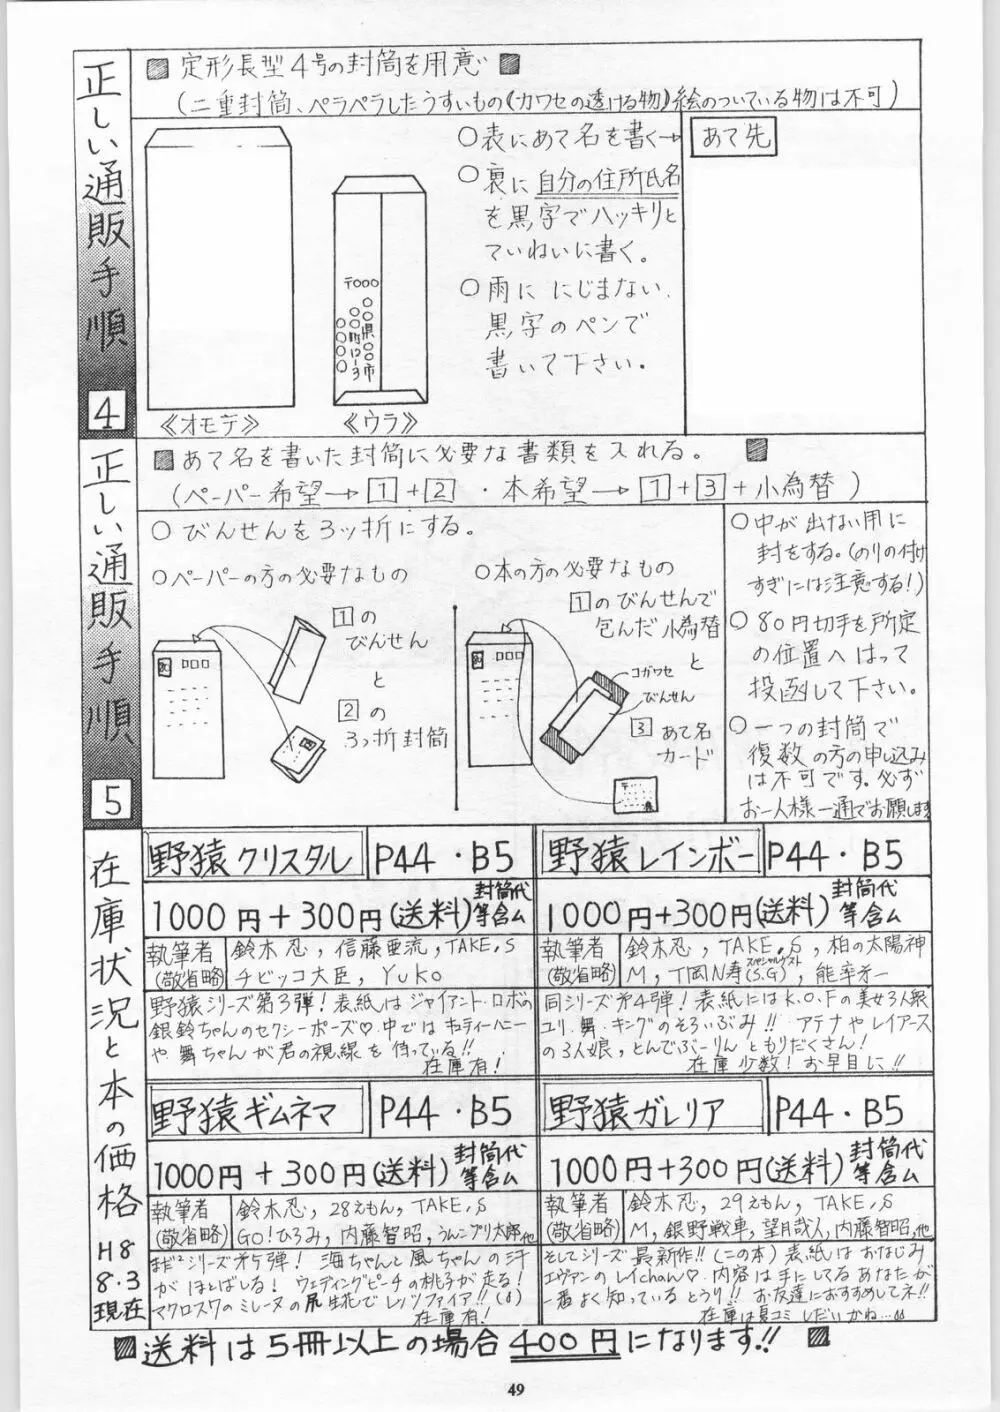 正しい通販手順 4
定形長型4号の封筒を用意
(二重封筒、ペラペラしたうすいもの《カワセの透ける物》絵のついている物は不可)
《オモテ》
〒000
《ウラ》
○表にあて名を書く→
○裏に自分の住所氏名
を黒字でハッキリと
ていねいに書く。
○雨ににじまない
黒字のペンで
書いて下さい。
あて先
正しい通販手順 5
あて名を書いた封筒に必要な書類を入れる。
(ペーパー希望→1+2・本希望→1+3+小為替)
○びんせんを3ッ折にする。
○ペーパーの方の必要なもの
1の
びんせん
と
2の
3ッ折封筒
○本の方の必要なもの
1のびんせんで
包んだ小為替
と
コガワセ
びんせん
3あて名
カード
○中が出ない用に
封をする。(のりの付け
すぎには注意する!)
○80円切手を所定
の位置へはって
投函して下さい。
○一つの封筒で
復数の方の申し込み
は不可です。必ず
お一人様一通でお願します
在庫状況と本の価格
H8
8.3
現在
野猿クリスタル
P44・B5
1000円+300円(送料)封筒代等含ム
執筆者
(敬省略)
鈴木忍, 信藤亜流, TAKE,S
チビッコ大臣, YUKO
野猿シリーズ第3弾!表紙はジャイアント・ロボの
銀鈴ちゃんのセクシーポーズ♡中ではキューティーハニー
や舞ちゃんが君の視線を待っている!!
在庫有!
野猿レインボー
P44・B5
1000円+300円(送料)封筒代等含ム
執筆者
(敬省略)
鈴木忍, TAKE,S, 柏の太陽神
M, T岡N寿(S.G)スペシャルゲスト, 能率才一
同シリーズ才4弾!表紙にはK.O.Fの美女3人娘
ユリ.舞.キングのそろいぶみ!! アテナやレイアース
の3人娘,とんでぶーりんともりだくさん!
在庫少数!お早目に!!
野猿ギムネマ
P44・B5
1000円+300円(送料)封筒代等含ム
執筆者
(敬省略)
鈴木忍, 28えもん, TAKE,S
GO!ひろみ, 内藤智昭, うんこプリ太郎,他
シリーズ才5弾! 海ちゃんと風ちゃんの汗
がほとばしる! ウェディングピーチの桃子が走る!
マクロス7のミレーヌの尻生花でレッツファイア!!
在庫有!
野猿ガレリア
P44・B5
1000円+300円(送料)封筒代等含ム
執筆者
(敬省略)
鈴木忍, 29えもん, TAKE,S
M, 銀野戦車, 望月哉人, 内藤智昭,他
そしてシリーズ最新作!!(この本)表紙はおなじみ
エヴァンのレイchan♡.内容は手にしてるあなたが
一番よく知っているとうり!! お友達におすすめしてネ!!
在庫は夏コミしだいかね…
送料は5冊以上の場合400円になります!!
49